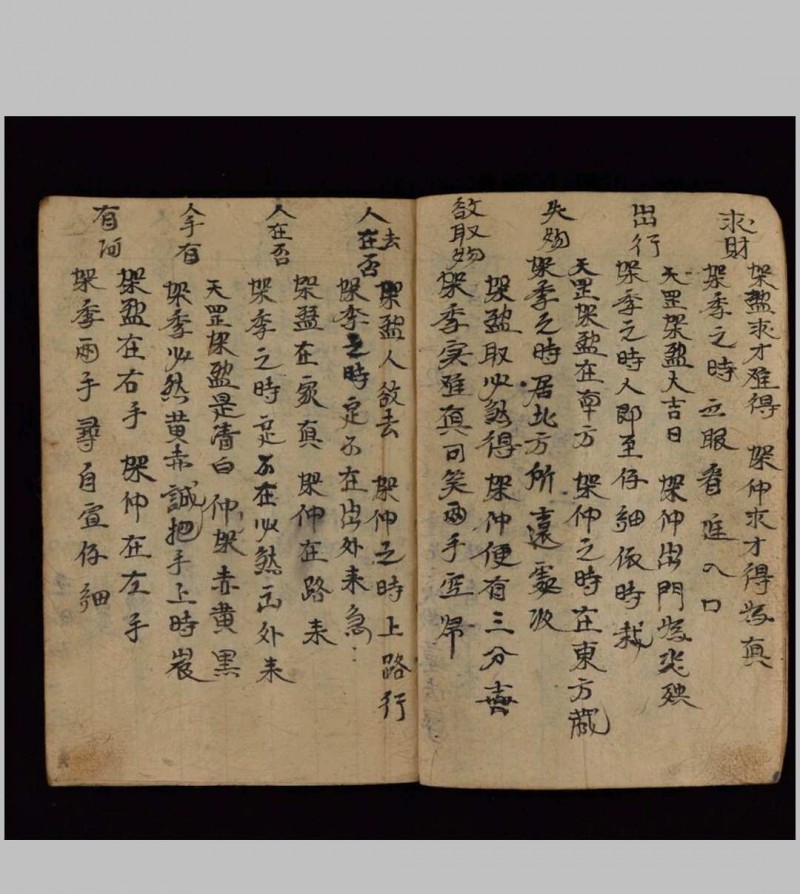 求財
架盈求才难得 架仲求才得為真
架季之時 立眼看進入口
出行
天罡架盈大吉日 架仲出門為災殃
架季之時人即至仔細依時栽
失物
天罡架盈在南方 架仲之時在東方藏
架季之時居北方所 遠處收
欲取物
架盈取必然得 架仲便有三分喜
架季实难真可笑兩手空歸
人去在否
架盈人欲去 架仲之時上路行
架季之時定不在出外来
人在否
架盈在家真 架仲在路来
架季之時定不在必然出外来
人手有
天罡架盈是清白 仲架赤黄黑
架季必然黄赤誠把手上時
有何
架盈在右手 架仲在左手
架季兩手尋自宣仔細